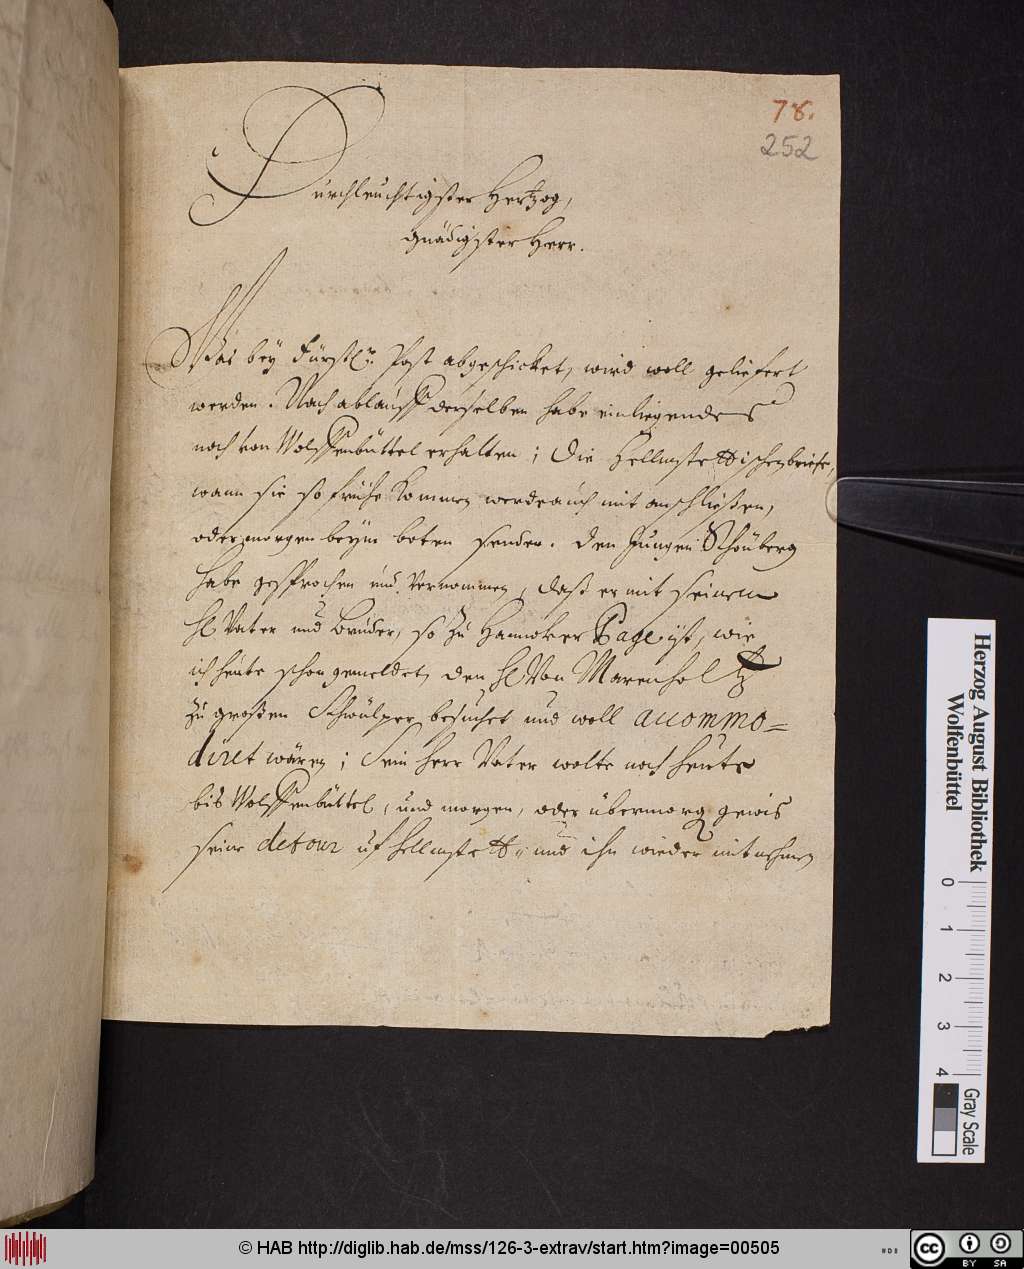 78.
252
Durchleuchtigster Hertzog,
Gnädigster Herr.
Was bey Fürstl.r Post abgeschicket, wird woll geliefert
werden. Nach ablauff derselben habe einliegendes
noch von Wolffenbüttel erhalten; Die Hellmstettischen briefe,
wann sie so frühe kommen werde auch mit anschließen,
oder morgen beym boten senden. Den Jungen Schönberg
habe gesprochen und vernommen, daß er mit seinem
H Vater und Bruder, so zu Hannover Page ist, wie
ich heute schon gemeldet, den H Von Marenholtz
zu großen Schwülper besuchet und woll accommo=
diret wären; Sein Herr Vater wolte noch heute
bis Wolffenbüttel, und morgen, oder übermorg gewis
seine detour uf Hellmstett, und ihn wieder mitnehmen
Herzog August Bibliothek
Wolfenbüttel
0 1 2 3 4
Gray Scale
© HAB http://diglib.hab.de/mss/126-3-extrav/start.htm?image=00505
cc BY SA